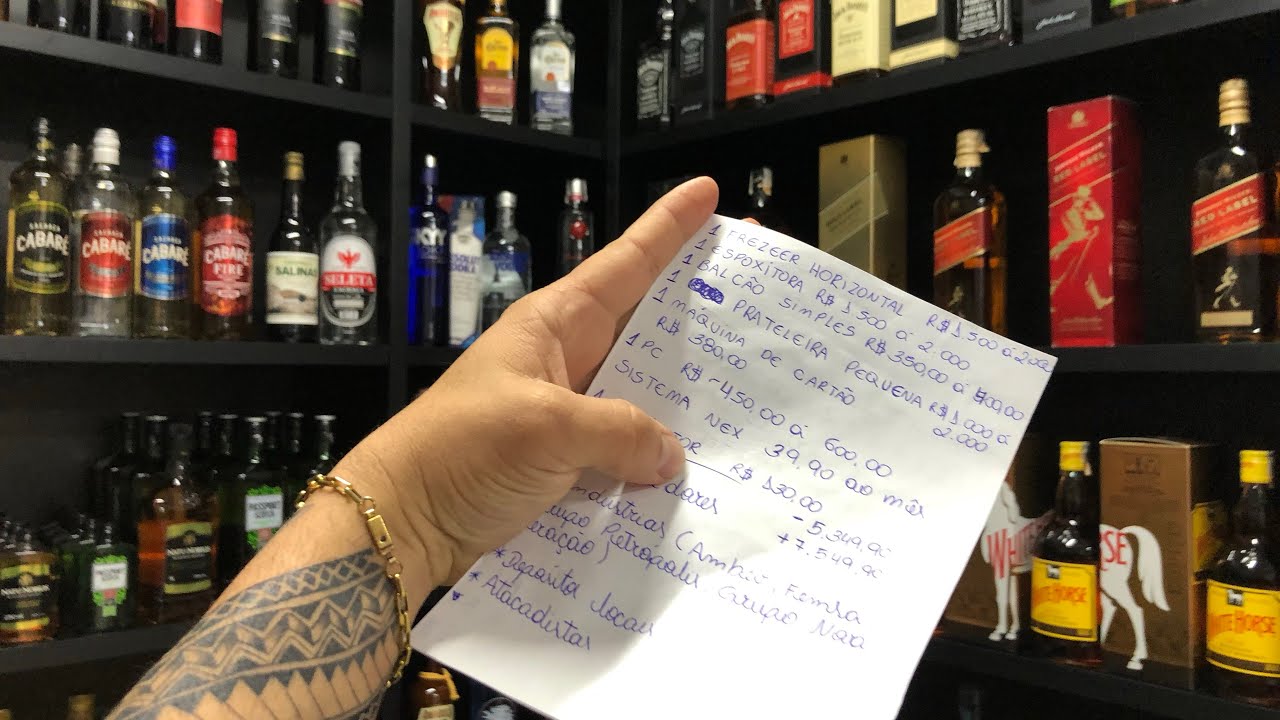 CABARÉ
CABARÉ
CABARÉ
CABARÉ
FIRE
SALINAS
SELETA
SKYY
RED LABEL
RED LABEL
RED LABEL
PASSPORT
SCOTCH
WHITE HORSE
WHITE HORSE
WHITE HORSE
1 FREZEER HORIZONTAL R$ 1.500 á 2.000
1 ESPOXITORA R$ 1.500 á 2.000
1 BALCÃO SIMPLES R$ 350,00 á 400,00
1 PRATELEIRA PEQUENA R$ 1.000 á
2.000
1 MÁQUINA DE CARTÃO
R$ 380,00
1 PC R$ 450,00 á 600,00
SISTEMA NEX 39,90 ao mês
R$ 130,00
- 5.349,90
+ 7.549,90
industrias (Ambev, Femsa
Grupo Petropolis, Grupo Nova
* Deposito locais
* Atacadistas